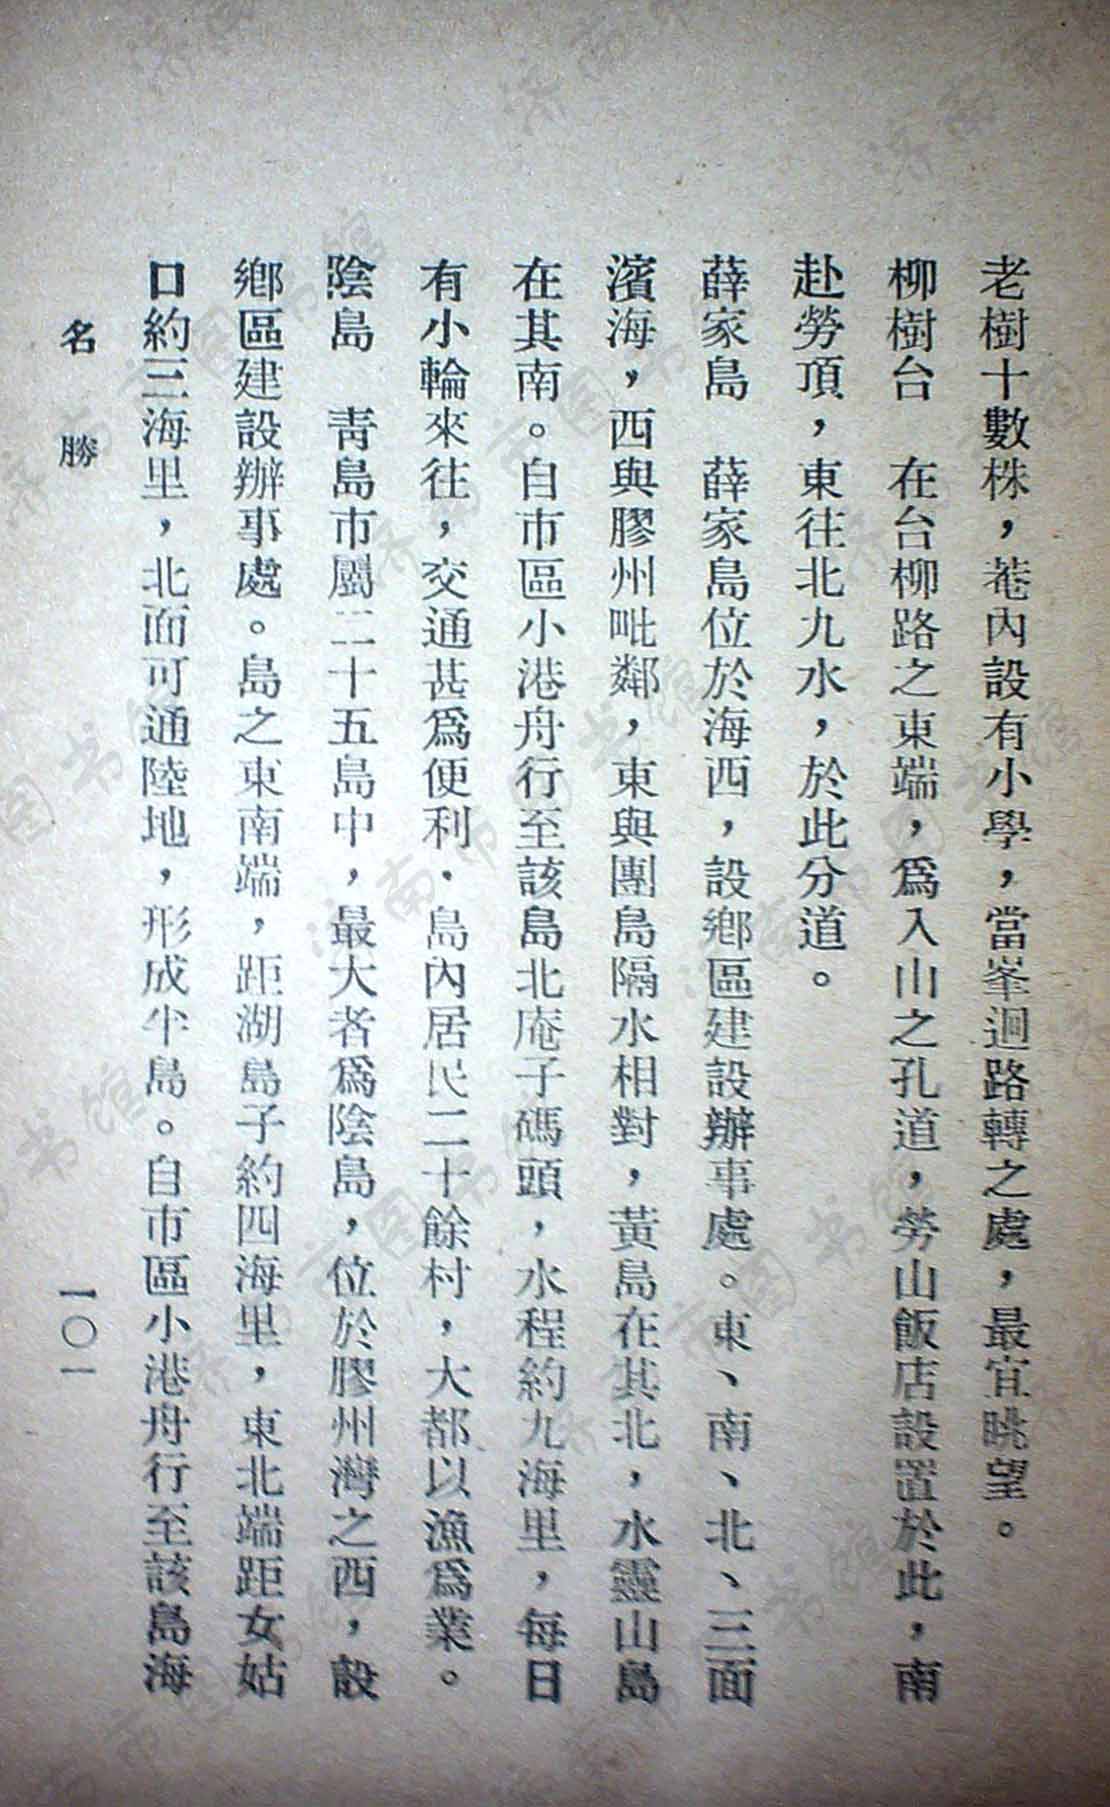 老樹十數株，菴內設有小學，當峯迴路轉之處，最宜眺望。
柳樹台　在台柳路之東端，爲入山之孔道，勞山飯店設置於此，南
赴勞頂，東往北九水，於此分道。
薛家島　薛家島位於海西，設鄕區建設辦事處。東、南、北、三面
濱海，西與膠州毗鄰，東與團島隔水相對，黃島在其北，水靈山島
在其南。自市區小港舟行至該島北庵子碼頭，水程約九海里，每日
有小輪來往，交通甚爲便利．島內居民二十餘村，大都以漁爲業。
陰島　靑島市屬二十五島中，最大者爲陰島，位於膠州灣之西，設
鄕區建設辦事處。島之東南端，距湖島子約四海里，東北端距女姑
口約三海里，北面可通陸地，形成半島。自市區小港舟行至該島海
名勝　一〇一
济南市图书馆